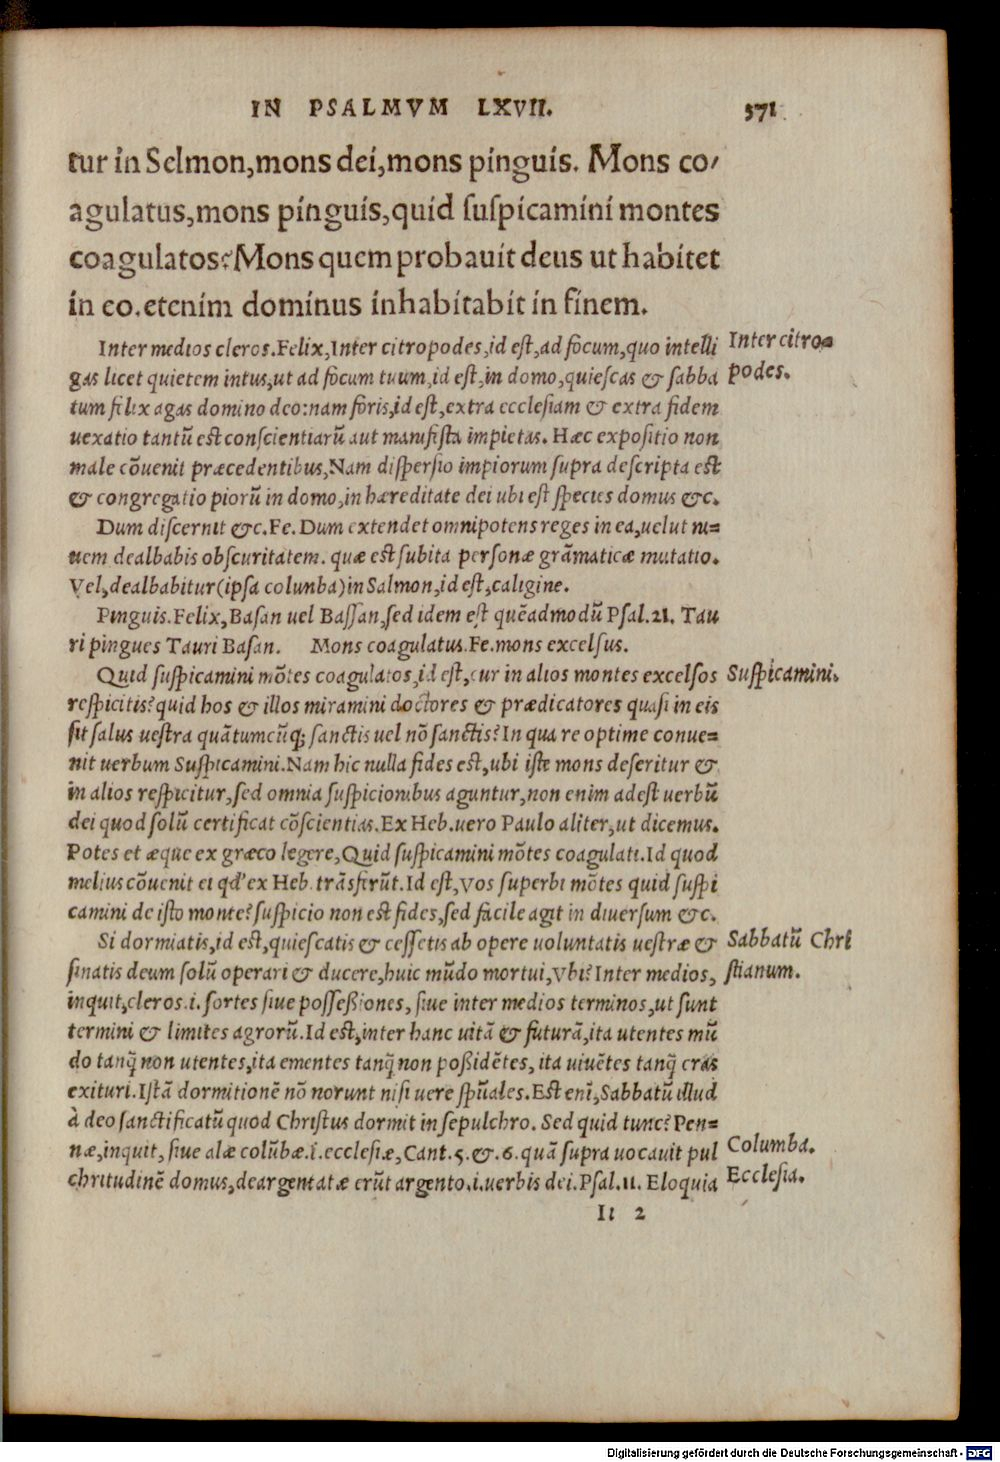 IN PSALMVM LXVII. 571
tur in Selmon,mons dei,mons pinguis. Mons co/
agulatus,mons pinguis,quid suspicamini montes
coagulatos?Mons quem probauit deus ut habitet
in eo.etenim dominus inhabitabit in finem.
Inter medios cleros.Felix,Inter citropodes,id est,ad focum,quo intelli
Inter citro=
gas licet quietem intus,ut ad focum tuum,id est,in domo,quiescas & sabba
podes.
tum felix agas domino deo:nam foris,id est,extra ecclesiam & extra fidem
uexatio tantū est conscientiarū aut manifesta impietas. Hæc expositio non
male cōuenit præcedentibus,Nam dispersio impiorum supra descripta est
& congregatio piorū in domo,in hæreditate dei ubi est species domus &c.
Dum discernit &c.Fe.Dum extendet omnipotens reges in ea,uelut ni=
uem dealbabis obscuritatem. quæ est subita personæ grāmaticæ mutatio.
Vel,dealbabitur(ipsa columba)in Salmon,id est,caligine.
Pinguis.Felix,Basan uel Bassan,sed idem est quēadmodū Psal.21. Tau
ri pingues Tauri Basan. Mons coagulatus.Fe.mons excelsus.
Quid suspicamini mōtes coagulatos,id est,cur in alios montes excelsos
Suspicamini.
respicitis?quid hos & illos miramini doctores & prædicatores quasi in eis
sit salus uestra quātumcūq; sanctis uel nō sanctis?In qua re optime conue=
nit uerbum Suspicamini.Nam hic nulla fides est,ubi iste mons deseritur &
in alios respicitur,sed omnia suspicionibus aguntur,non enim adest uerbū
dei quod solū certificat cōscientias.Ex Heb.uero Paulo aliter,ut dicemus.
Potes et æque ex græco legere,Quid suspicamini mōtes coagulati.Id quod
melius cōuenit ei qd' ex Heb.trāsferūt.Id est,Vos superbi mōtes quid suspi
camini de isto monte?suspicio non est fides,sed facile agit in diuersum &c.
Si dormiatis,id est,quiescatis & cessetis ab opere uoluntatis uestræ &
Sabbatū Chri
sinatis deum solū operari & ducere,huic mūdo mortui,Vbi?Inter medios,
stianum.
inquit,cleros.i.sortes siue possessiones, siue inter medios terminos,ut sunt
termini & limites agrorū.Id est,inter hanc uitā & futurā,ita utentes mū
do tanq̄ non utentes,ita ementes tanq̄ non possidētes, ita uiuētes tanq̄ cras
exituri.Istā dormitionē nō norunt nisi uere spūales.Est enī,Sabbatū illud
à deo sanctificatū quod Christus dormit in sepulchro. Sed quid tunc?Pen=
næ,inquit, siue alæ colūbæ.i.ecclesiæ,Cant.5.&.6.quā supra uocauit pul
Columba.
chritudinē domus,deargentatæ erūt argento.i.uerbis dei.Psal.11. Eloquia
Ecclesia.
Ii 2
Digitalisierung gefördert durch die Deutsche Forschungsgemeinschaft - DFG